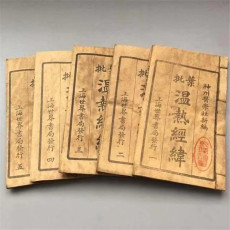 神州醫學社新編
葉批
溫熱經緯
上海世界書局發行 一
批
上海世界書局發行 二
批
溫熱經
上海世界書局發行 三
上海世界書局發行 四
上海世界書局發行 五